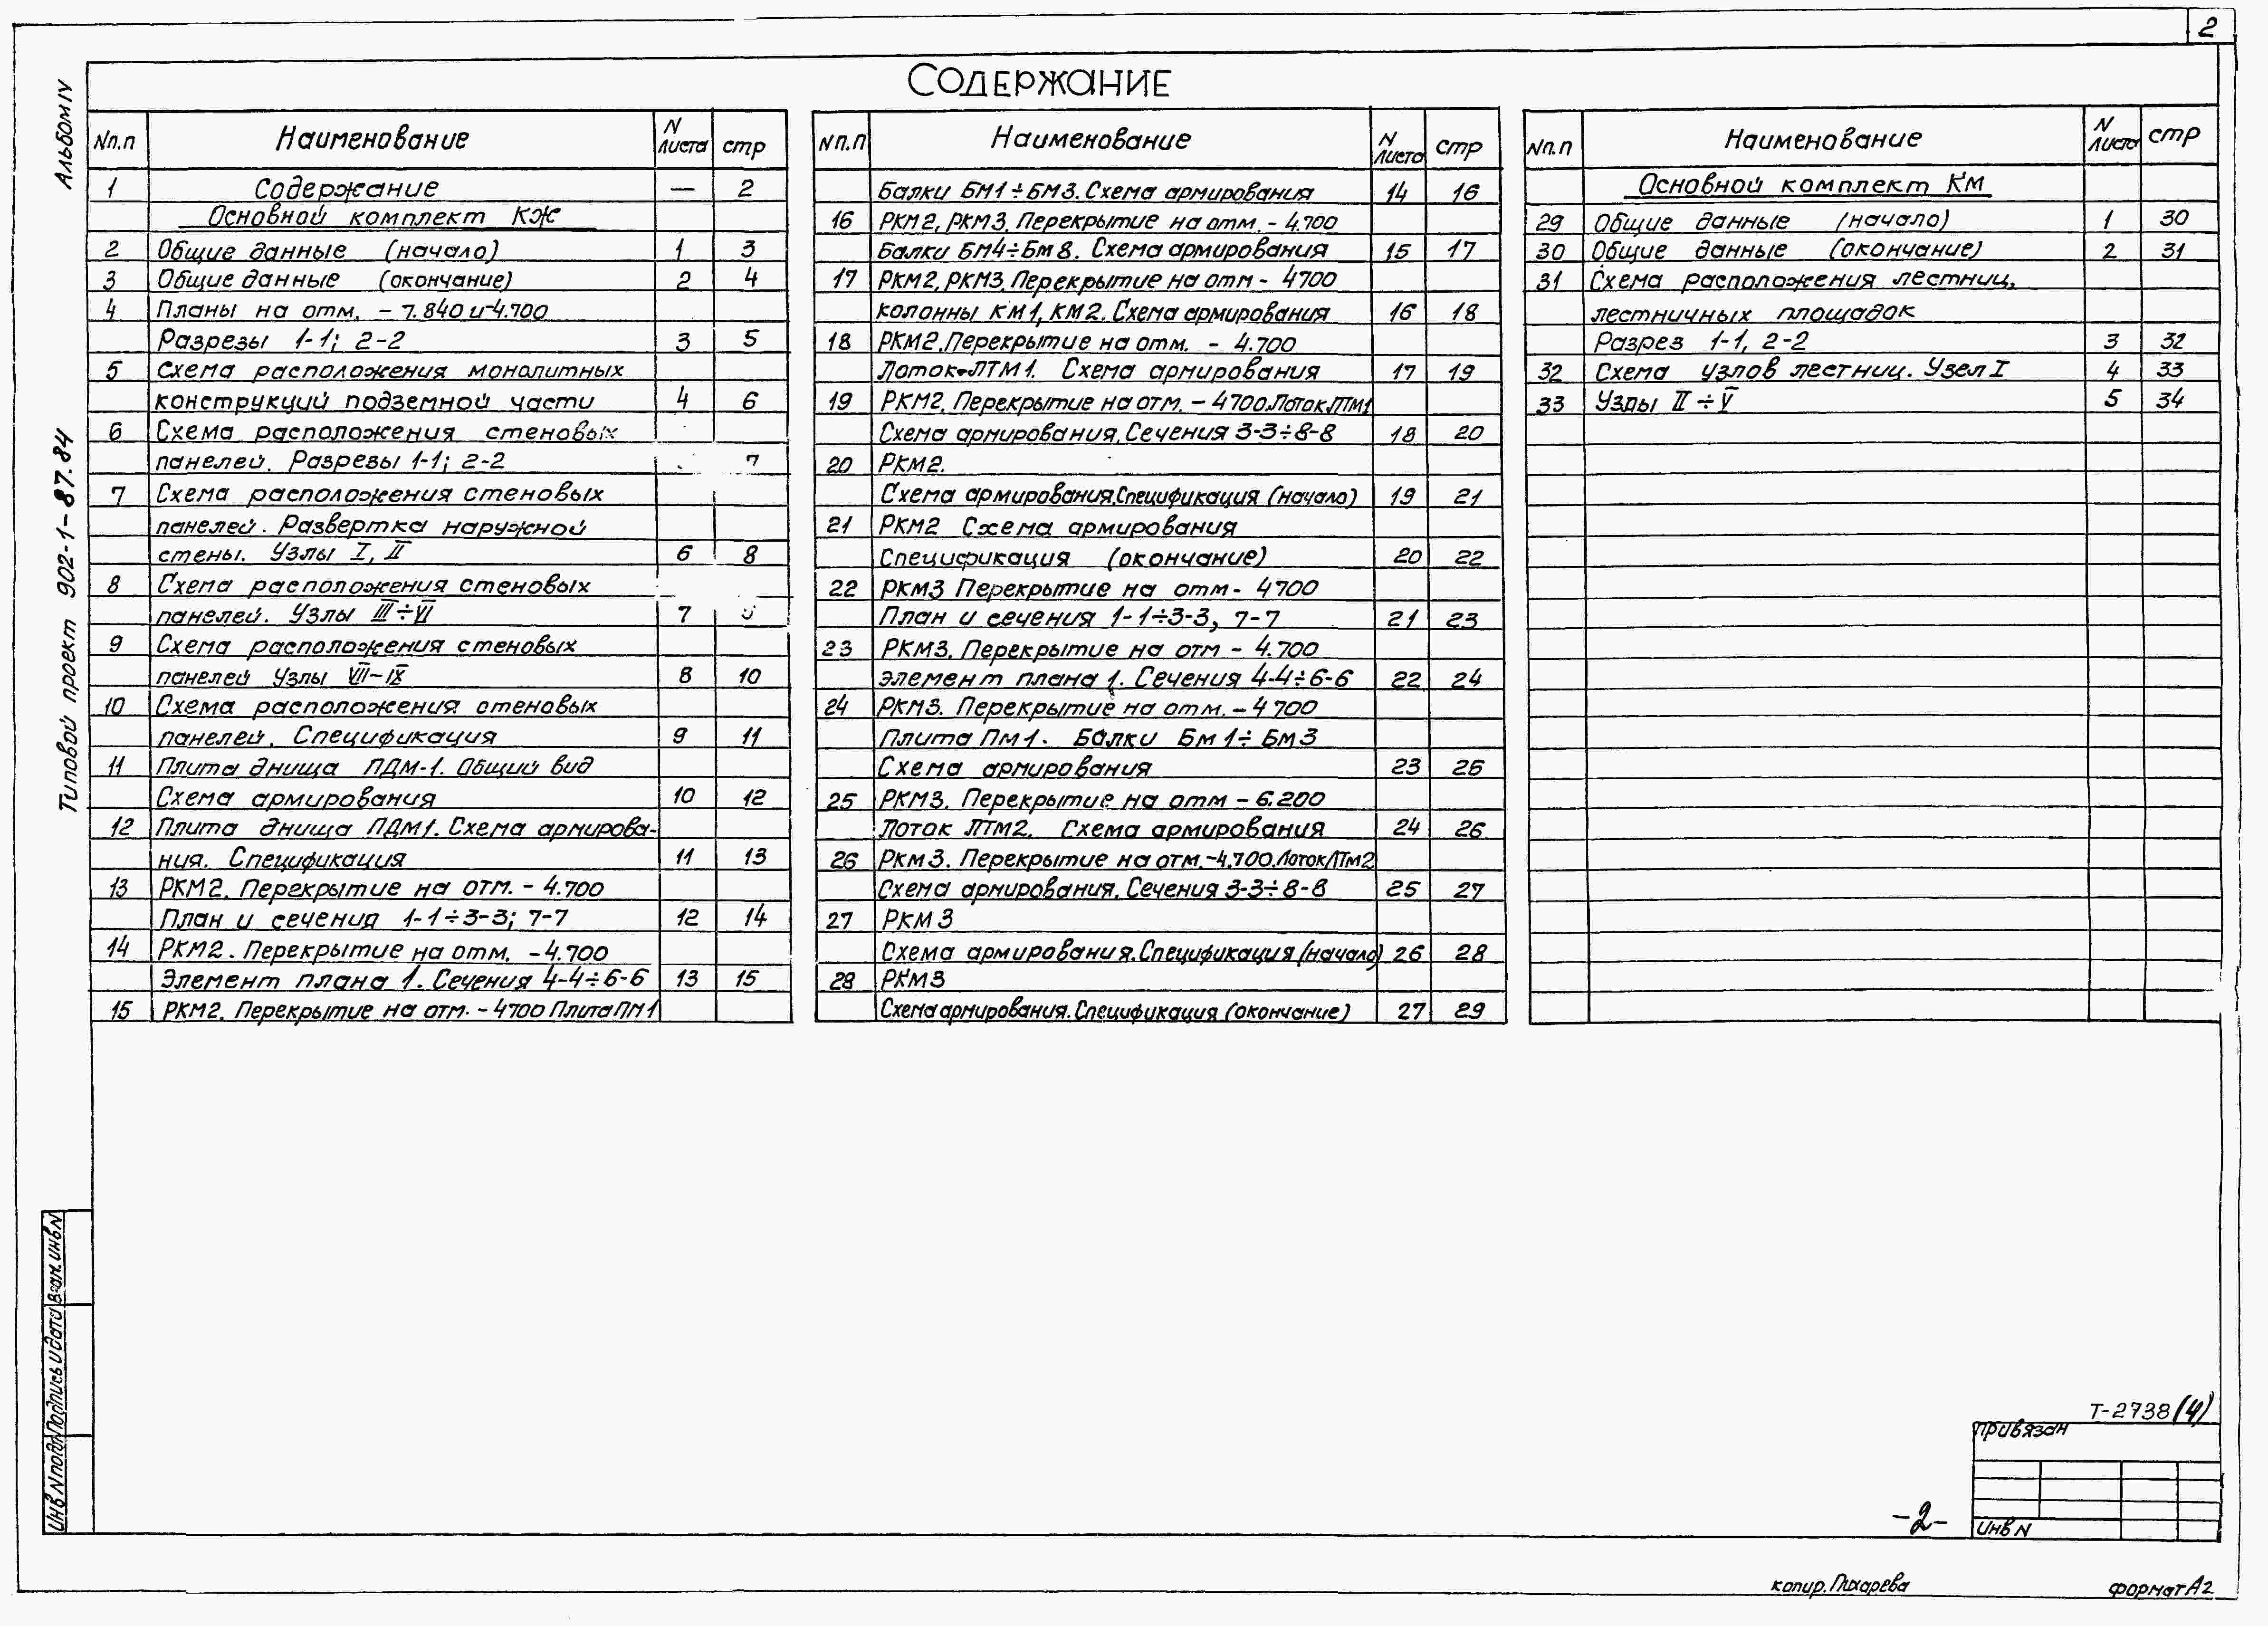 2
СОДЕРЖАНИЕ
Альбом IV
Типовой проект 902-1-87.84
Nп.п Наименование N листа стр
1 Содержание — 2
Основной комплект КЖ
2 Общие данные (начало) 1 3
3 Общие данные (окончание) 2 4
4 Планы на отм. -7.840 и -4.700
Разрезы 1-1; 2-2 3 5
5 Схема расположения монолитных
конструкций подземной части 4 6
6 Схема расположения стеновых
панелей. Разрезы 1-1; 2-2 7
7 Схема расположения стеновых
панелей. Развертка наружной
стены. Узлы I, II 6 8
8 Схема расположения стеновых
панелей. Узлы III÷VI 7
9 Схема расположения стеновых
панелей Узлы VII-IX 8 10
10 Схема расположения стеновых
панелей. Спецификация 9 11
11 Плита днища ПДМ-1. Общий вид
Схема армирования 10 12
12 Плита днища ПДМ1. Схема армирова-
ния. Спецификация 11 13
13 РКМ2. Перекрытие на отм. - 4.700
План и сечения 1-1÷3-3; 7-7 12 14
14 РКМ2. Перекрытие на отм. -4.700
Элемент плана 1. Сечения 4-4÷6-6 13 15
15 РКМ2. Перекрытие на отм. - 4700 Плита ПМ1
Nп.п Наименование N листа стр
Балки БМ1÷БМ3. Схема армирования 14 16
16 РКМ2, РКМ3. Перекрытие на отм. - 4.700
Балки БМ4÷БМ8. Схема армирования 15 17
17 РКМ2, РКМ3. Перекрытие на отм - 4700
колонны КМ1, КМ2. Схема армирования 16 18
18 РКМ2. Перекрытие на отм. - 4.700
Лоток ЛТМ1. Схема армирования 17 19
19 РКМ2. Перекрытие на отм. - 4700. Лоток ЛТМ1
Схема армирования. Сечения 3-3÷8-8 18 20
20 РКМ2.
Схема армирования. Спецификация (начало) 19 21
21 РКМ2 Схема армирования
Спецификация (окончание) 20 22
22 РКМ3 Перекрытие на отм - 4700
План и сечения 1-1÷3-3, 7-7 21 23
23 РКМ3. Перекрытие на отм - 4.700
элемент плана 1. Сечения 4-4÷6-6 22 24
24 РКМ3. Перекрытие на отм. - 4 700
Плита ПМ1. Балки БМ1÷БМ3
Схема армирования 23 25
25 РКМ3. Перекрытие на отм - 6.200
Лоток ЛТМ2. Схема армирования 24 26
26 РКМ3. Перекрытие на отм. -4.700. Лоток ЛТМ2
Схема армирования. Сечения 3-3÷8-8 25 27
27 РКМ3
Схема армирования. Спецификация (начало) 26 28
28 РКМ3
Схема армирования. Спецификация (окончание) 27 29
Nп.п Наименование N листа стр
Основной комплект КМ
29 Общие данные (начало) 1 30
30 Общие данные (окончание) 2 31
31 Схема расположения лестниц,
лестничных площадок
Разрез 1-1, 2-2 3 32
32 Схема узлов лестниц. Узел I 4 33
33 Узлы II÷V 5 34
Инв N подл. Подпись и дата Взам. инв N
Т-2738 (4)
Привязан
Инв N
-2-
копир. Пихарева
формат А2